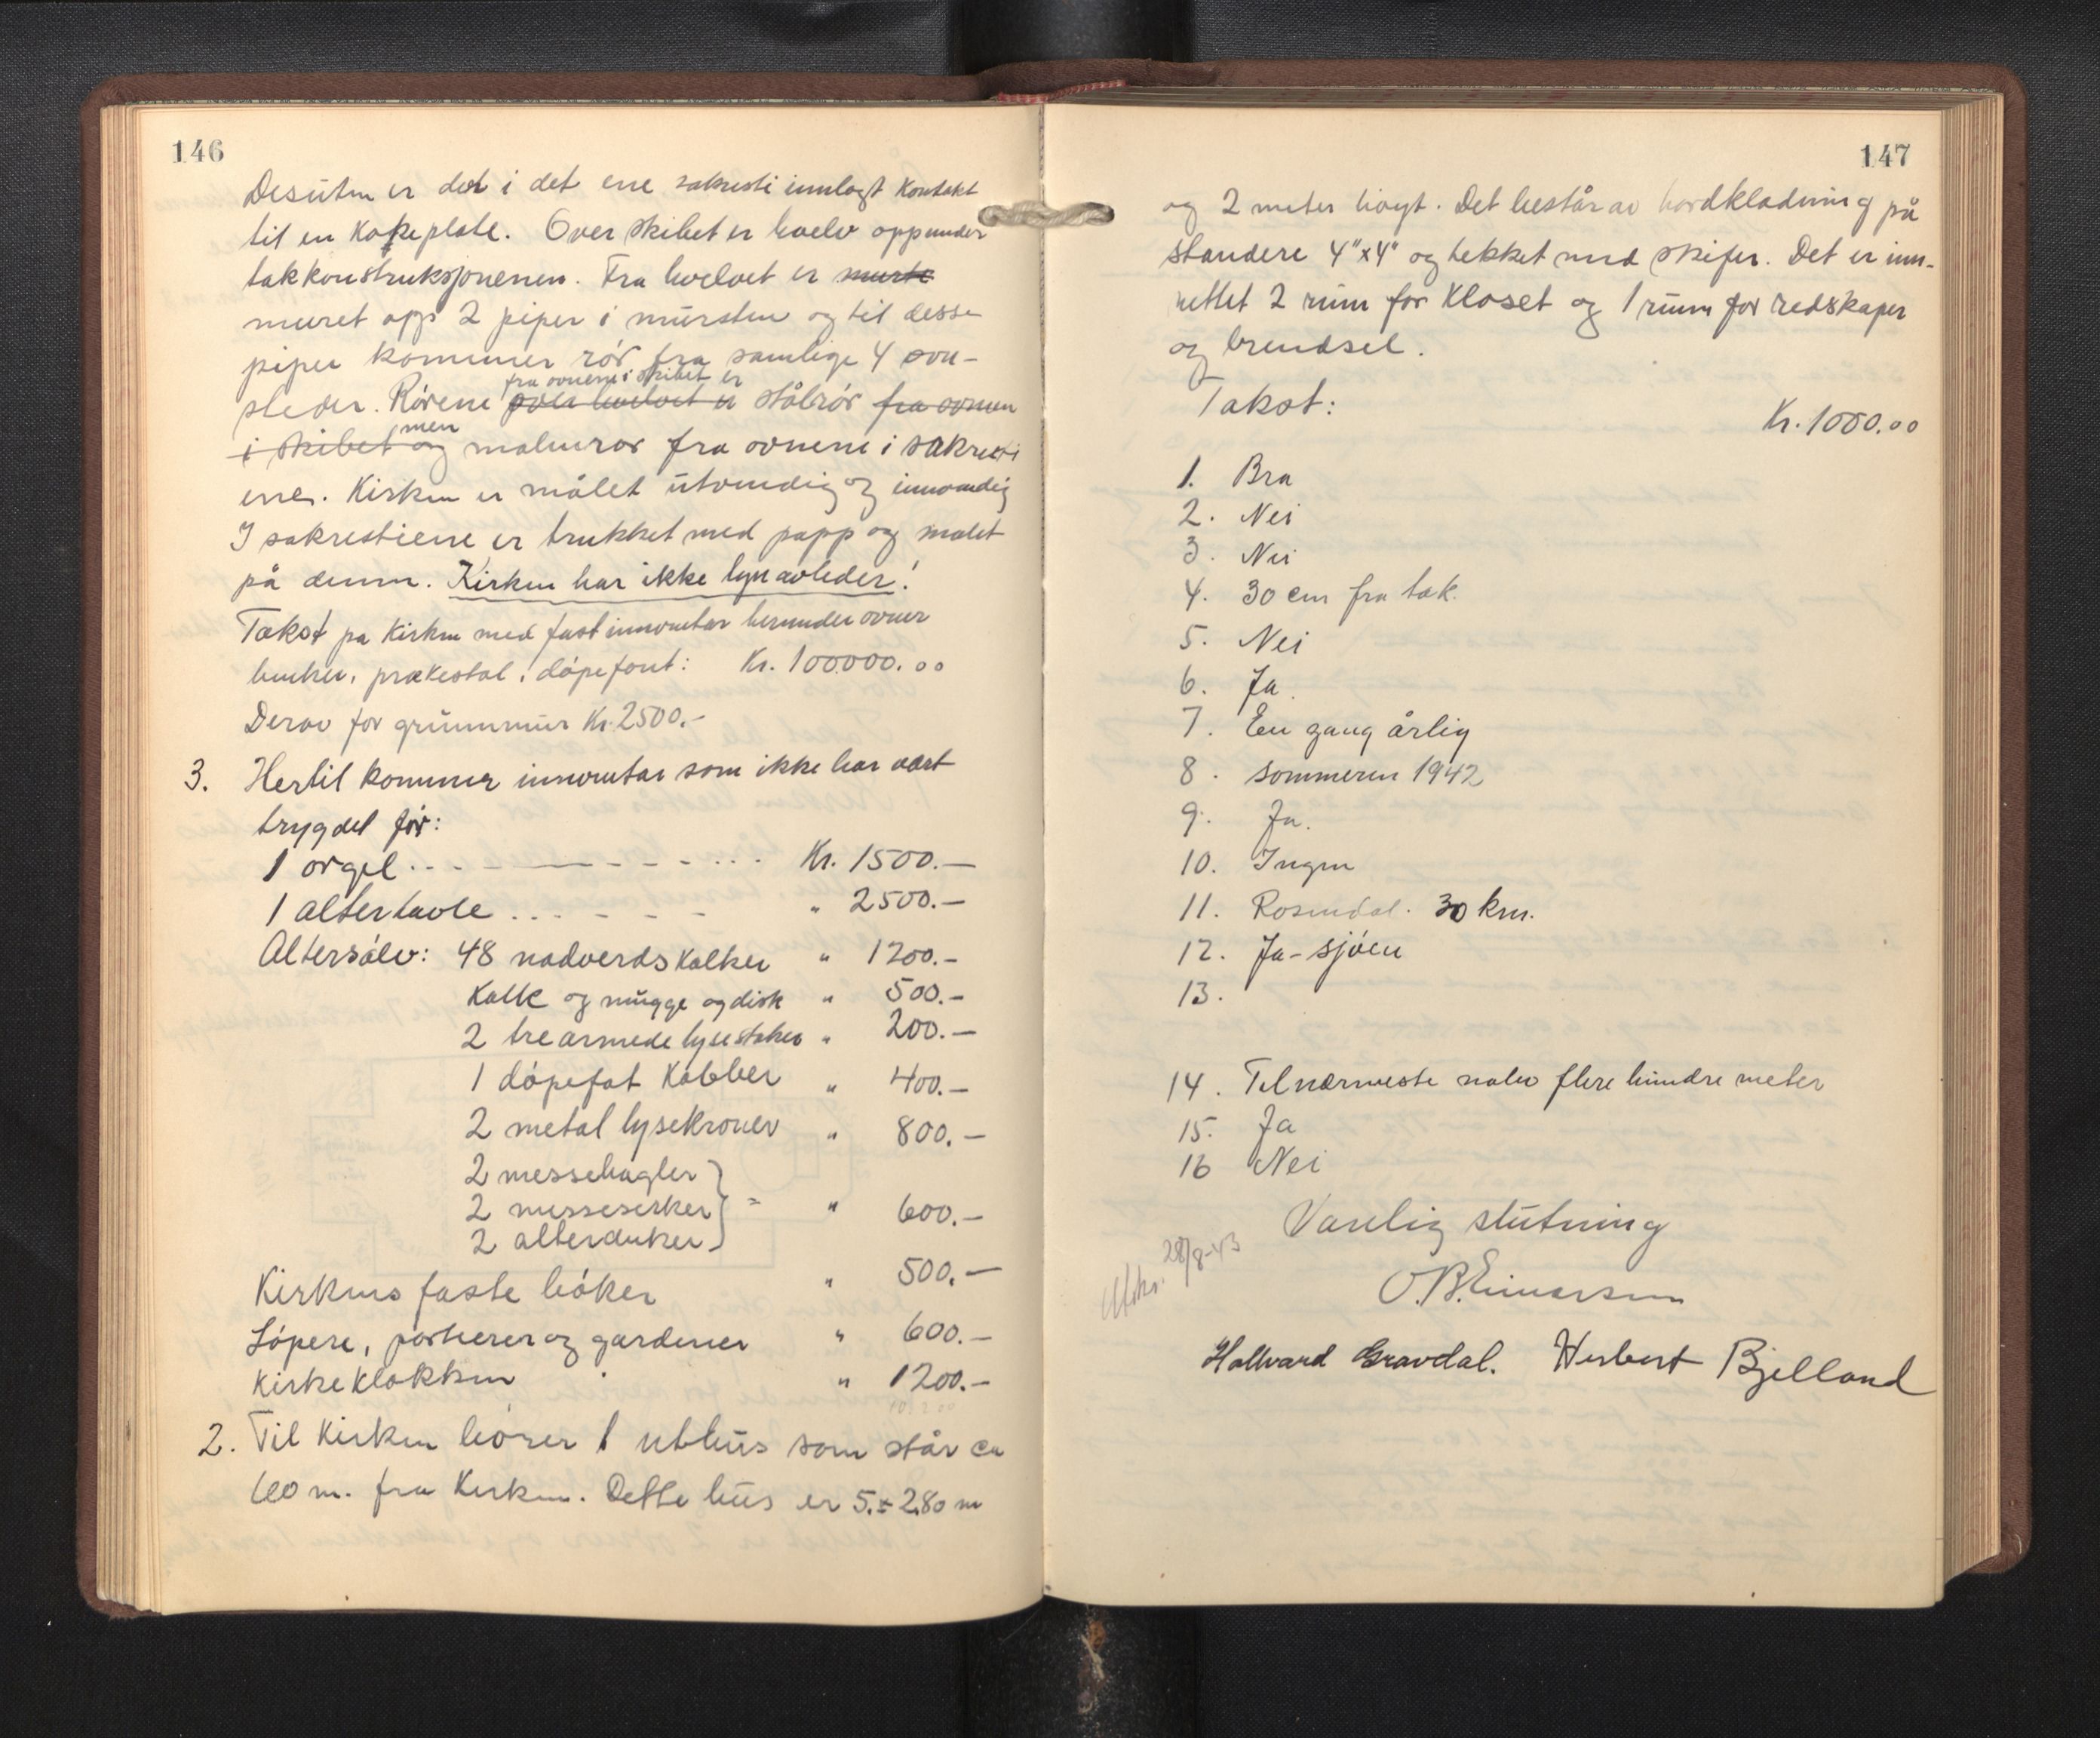 146
Desuten er det i det ene sakresti innlagt kontakt
til en kokeplate. Over skibet er hvelv opp under
takkonstruksjonenen. Fra hvelvet er murte
muret opp 2 piper i mursten og til desse
piper kommer rör fra samlige 4 ovn-
fra ovnene i skibet er
steder. Rörene over hvelvet er stålrör fra ovnen
men
i skibet og malmrör fra ovnene i sakresti
ene. Kirken er målet utvendig og innvendig
I sakrestiene er trukket med papp og malet
på denne. Kirken har ikke lynavleder!
Takst pa Kirken med fast innventar herunder ovner
benker, prækestol, döpefont: Kr. 100000.00
Derav for grunnmur Kr. 2500.-
3. Hertil kommer innventar som ikke har vært
trygdet för:
1 orgel Kr. 1500.—
1 altertavle " 2500.—
Altersölv: 48 nadverdskalker " 1200.-
Kalk og mugge og disk " 500.-
2 trearmede lysestaker " 200.—
1 döpefat Kobber " 400.—
2 metal lysekroner " 800.—
2 messehagler
2 messeserker } = " 600.—
2 alterduker
Kirkens faste böker " 500.—
Löpere, portierer og gardener " 600.—
Kirkeklokken " 1200.—
2. Til Kirken hörer 1 uthus som står ca
100 m. fra Kirken. Dette hus er 5.x 2.80 m
147
og 2 meter höyt. Det består av bordkladning på
standere 4"x4" og tekket med skifer. Det er inn-
rettet 2 rum for Kloset og 1 rum for redskaper
og brendsel.
Takst: Kr. 1000.00
1. Bra
2. Nei
3. Nei
4. 30 cm fra tak.
5. Nei
6. Ja.
7. En gang årlig
8. sommeren 1942
9. Ja.
10. Ingen
11. Rosendal. 30 km.
12. Ja - sjöen
13.
14. Til nærmeste nabo flere hundre meter
15. Ja
16 Nei
Vanlig slutning
28/8-43
O. B. Einarsen
Hallvard Gravdal. Herbert Bjelland